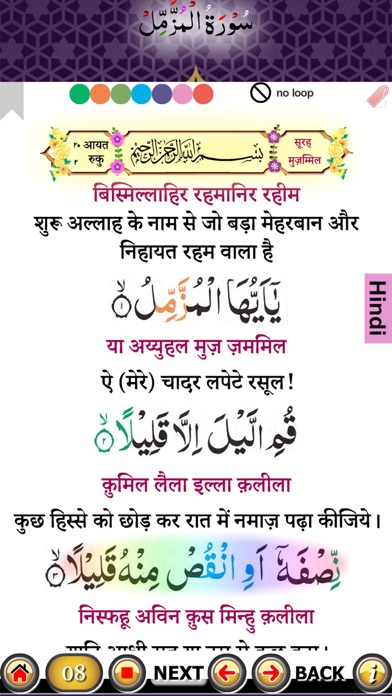 سُوْرَةُ الْمُزَّمِّلْ
no loop
२० आयत
रुकु २
بِسْمِ اللّٰهِ الرَّحْمٰنِ الرَّحِيْمِ
सूरह
मुज़म्मिल
बिस्मिल्लाहिर रहमानिर रहीम
शुरू अल्लाह के नाम से जो बड़ा मेहरबान और
निहायत रहम वाला है
Hindi
يٰۤاَيُّهَا الْمُزَّمِّلُ ۙ‏﴿۱﴾
या अय्युहल मुज़ ज़ममिल
ऐ (मेरे) चादर लपेटे रसूल!
قُمِ الَّيْلَ اِلَّا قَلِيْلًا ۙ‏﴿۲﴾
क़ुमिल लैला इल्ला क़लीला
कुछ हिस्से को छोड़ कर रात में नमाज़ पढ़ा कीजिये।
نِّصْفَهٗۤ اَوِ انْقُصْ مِنْهُ قَلِيْلًا ۙ‏﴿۳﴾
निस्फहू अविन क़ुस मिन्हु क़लीला
08 NEXT BACK i